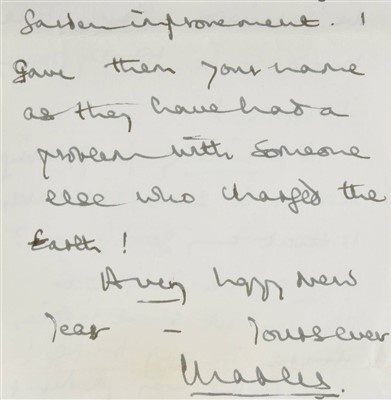 Garden improvement. I
Gave them your name
as they have had a
problem with Someone
else who charged the
Earth!
A very happy New
Year – Yours ever
Charles.